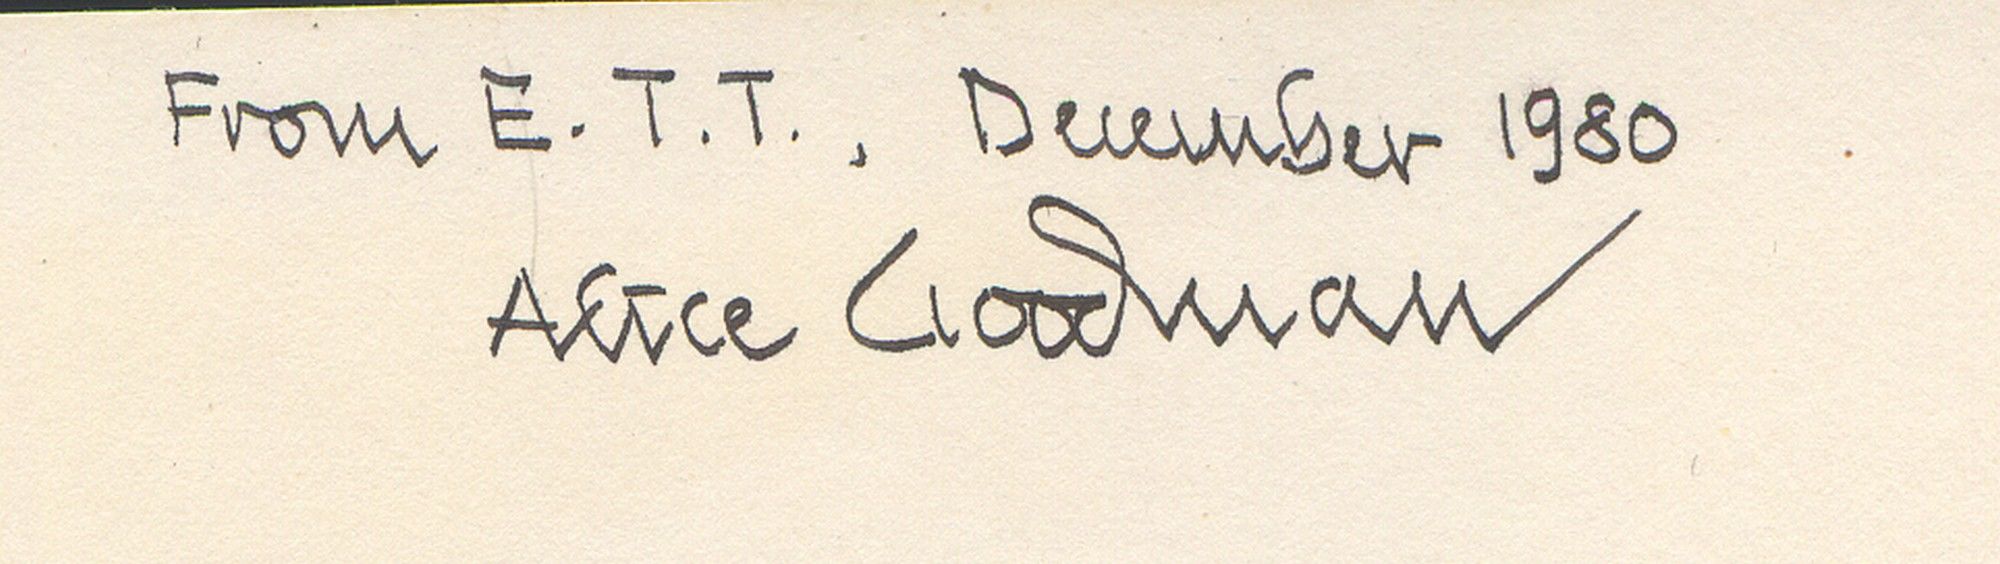 From E.T.T., December 1980
Alice Goodman